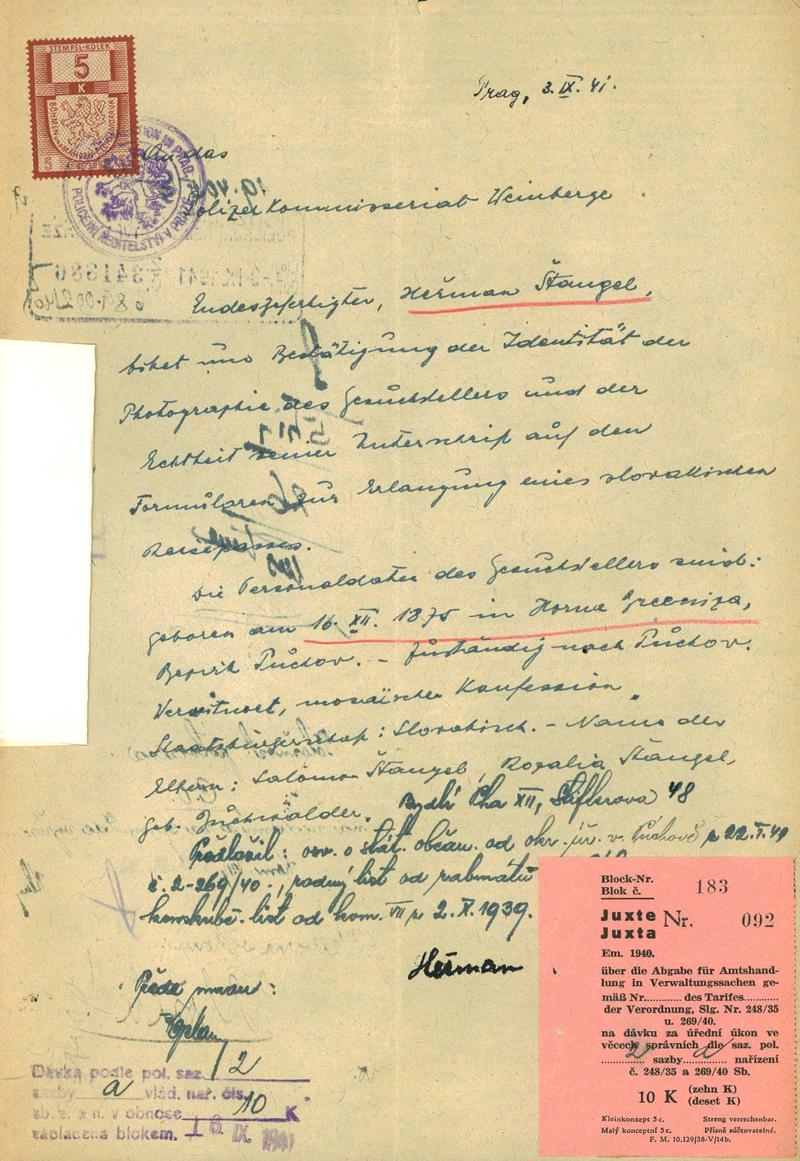 STEMPEL-KOLEK
5
K
Prag, 3. IX. 41.
An das
Polizei Kommissariat Weinberge
POLICEJNÍ ŘEDITELSTVÍ V PRAZE
Endesgefertigter, Heřman Štangel,
bittet um Bestätigung der Identität der
Photographie des Gesuchstellers und der
Echtheit seiner Unterschrift auf den
Formularen zur Erlangung eines slovakischen
Reisepasses.
Die Personaldaten des Gesuchstellers sind:
geboren am 16. XII. 1875 in Horna
Bezirk Púchov. – Zuständig nach Púchov.
Verwitwet, mosaischer Konfession.
Staatsbürgerschaft: Slovakisch. – Name der
Eltern: Salamon Štangel, Rozalia Štangel,
geb.
Bydlí Pha XII, 48
Předložil: osv. o stát. občan. od okr. úř. v Púchově z 22.I.40
č. 2-269/40., rodný list od rabinátu
list od kom. VII z 2. X. 1939.
Heřman
Přede mnou:
Dávka podle pol. saz. 2
sazby a vlád. nař. čís.
sb. z. a n. v obnose 10 K
zaplacena blokem. IX. 1941
Block-Nr.
Blok č. 183
Juxte Nr. 092
Juxta
Em. 1940.
über die Abgabe für Amtshand-
lung in Verwaltungssachen ge-
mäß Nr........... des Tarifes...........
der Verordnung, Slg. Nr. 248/35
u. 269/40.
na dávku za úřední úkon ve
věcech správních dle saz. pol.
2 sazby a nařízení
č. 248/35 a 269/40 Sb.
10 K (zehn K)
(deset K)
Kleinkonzept 5 c. Streng verrechenbar.
Malý konceptní 5 c. Přísně súčtovatelné.
F. M. 10.129/38-V/14b.